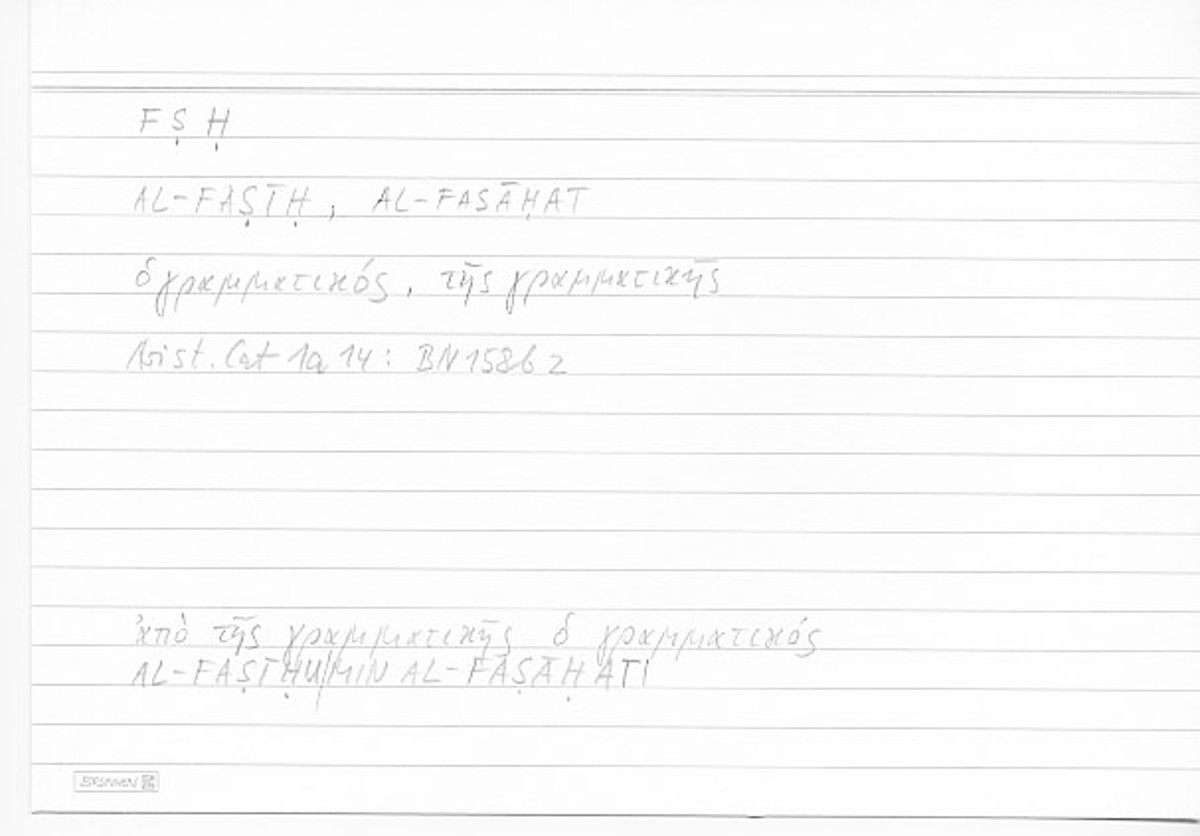 F Ṣ Ḥ
AL-FAṢĪḤ, AL-FASĀḤAT
ὁ γραμματικός, τῆς γραμματικῆς
Arist. Cat 1a 14: BN 158b 2
ἀπὸ τῆς γραμματικῆς ὁ γραμματικός
AL-FAṢĪḤU/MIN AL-FAṢĀḤATI
BRUNNEN